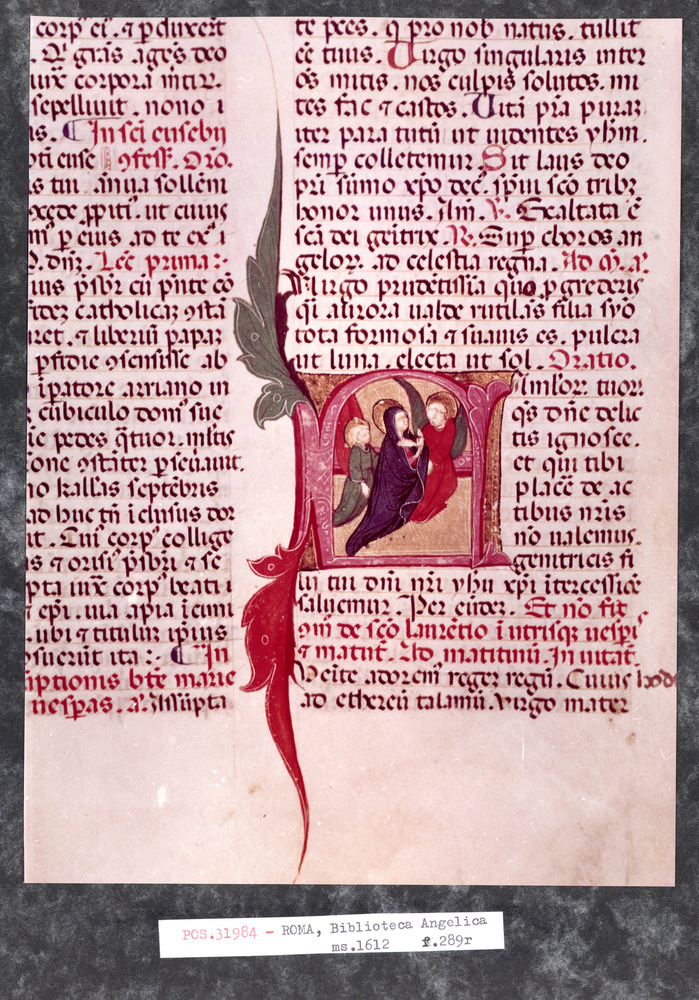 corp' ei. ⁊ pduxert
. Q' grãs ages deo
iux corpora mír.
sepelliuit. nono i
is. In scĩ eusebij
oti euse ꝯfess. Oro.
s tui annua sollẽni
p eius ad te ex i
. dn̄z. Lec̃ prima:
catholicaz ꝯsta
iret. ⁊ liberiũ papaz
pfidie ꝯsensisse ab
ipatore arriano in
cubiculo dom' sue
pedes q̃tuor. mẽs
ꝯstãter pseuaut.
io kallas septẽbris
ad huc tñ i clusus dor
it. Cui' corp' collige
s ⁊ orisi' psbr̃i ⁊ se
pta iux corp' beati
epi. uia apia i cimi
. ubi ⁊ titulũr ipius
suerũt ita :. In
ũptionis bt̃e marie
uesp̃as. a. Assũpta
te pces. q pro nob natus. tullit
eẽ tuus. Uirgo singularis inter
oẽs mitis. nos culpis solutos. mi
tes fac ⁊ castos. Uitã pra puraz
iter para tutũ ut uidentes yhm.
semp colletemur Sit laus deo
pri sũmo xpo dec'. spũi scõ tribz
honor unus. Am̃. V. Exaltata ẽ
scã dei geitrix. R. Sup choros an
gelor. ad celestia regna. Ad m̃. a.
Uirgo prudẽtissĩa quo pgrederis
q̃i aurora ualde rutilãs filia syõ
tota formosa ⁊ suauis es. pulcra
ut luna. electa ut sol. Oratio.
Famlor. tuor
q̃s dñe delic
tis ignosce.
et qui tibi
placẽ de ac
tibus nris
nõ ualemus.
genitricis fi
lij tui dñi nr̃i yhu xp̃i ĩtercessiõe
saluemur. Per eũdez. Et nõ fit
ꝯm̃ de scõ laurẽtio i utrisqz uesp̃i
⁊ matut̃. Ad matitinũ. Inuitat̃.
Uẽite adorem' regez regũ. Cuius hodie
ad ethereũ talamũ. uirgo mater
POS.31984 - ROMA, Biblioteca Angelica
ms.1612 f.289r